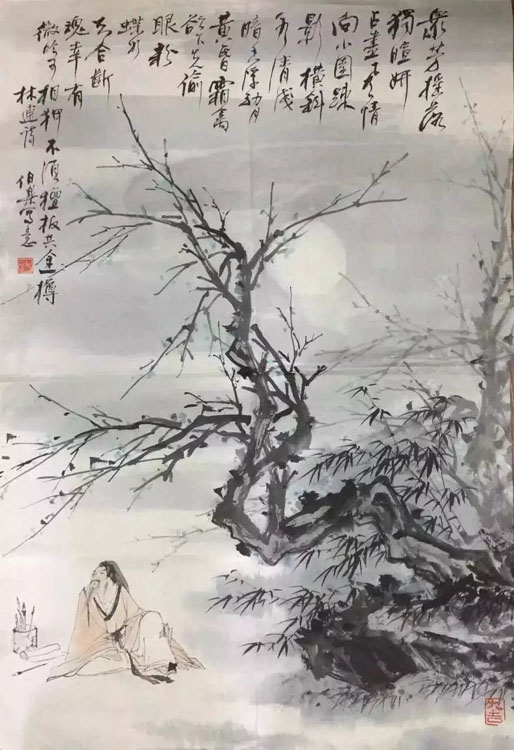 眾芳搖落
獨暄妍
占盡風情
向小園疎
影橫斜
水清淺
暗香浮動月
黃昏霜禽
欲下先偷
眼粉
蝶如
知合斷
魂幸有
微吟可相狎不須檀板共金樽
林逋詩 伯寫意